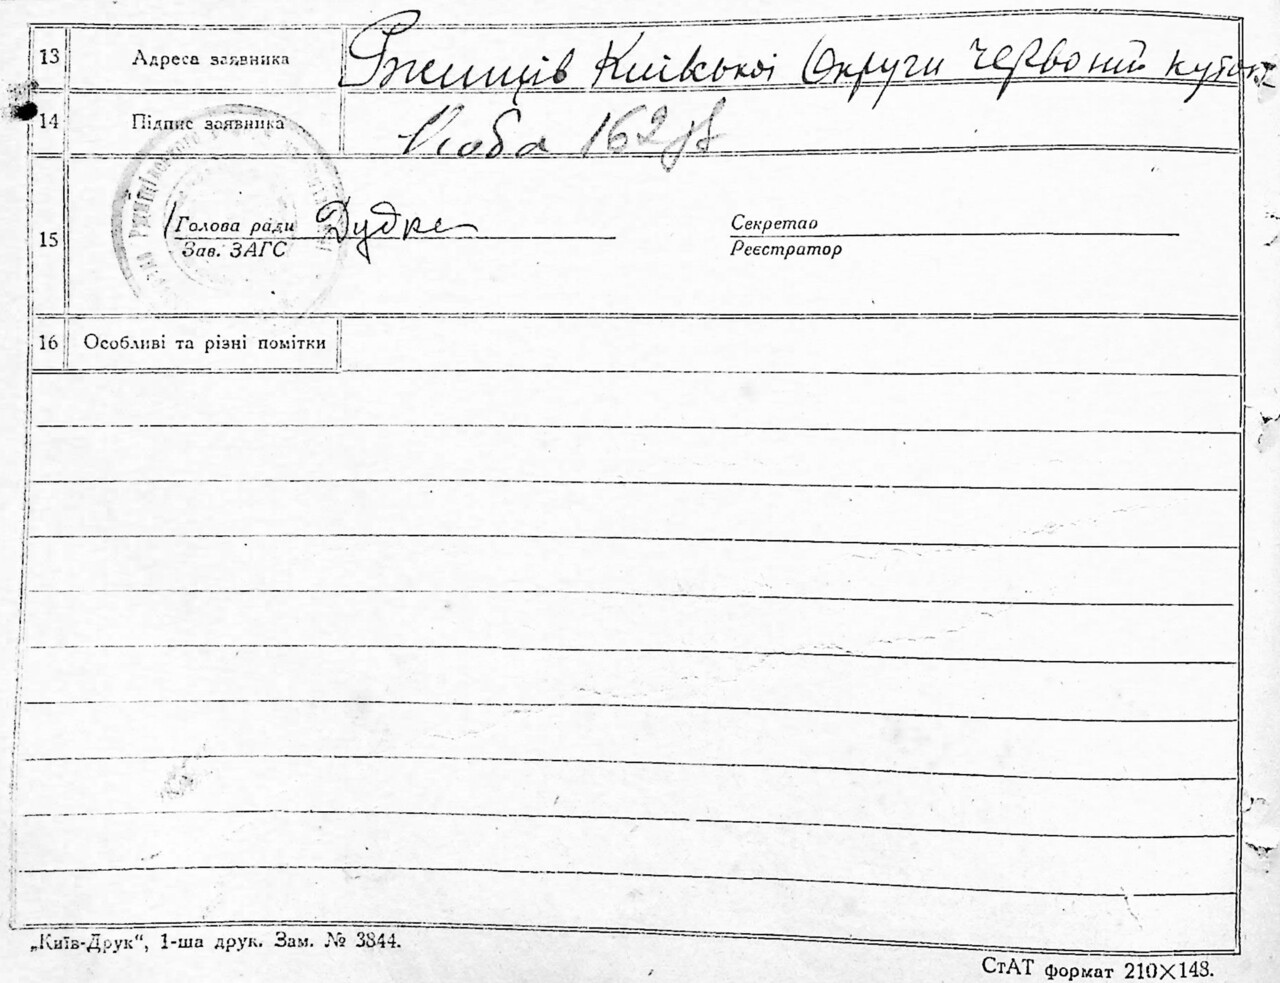 13 Адреса заявника Ржищів Київської Округи червоний куток
14 Підпис заявника 162
Голова ради Секретар
15
Зав. ЗАГС Реєстратор
16 Особливі та різні помітки
„Київ-Друк“, 1-ша друк. Зам. № 3844.
СтАТ формат 210×148.